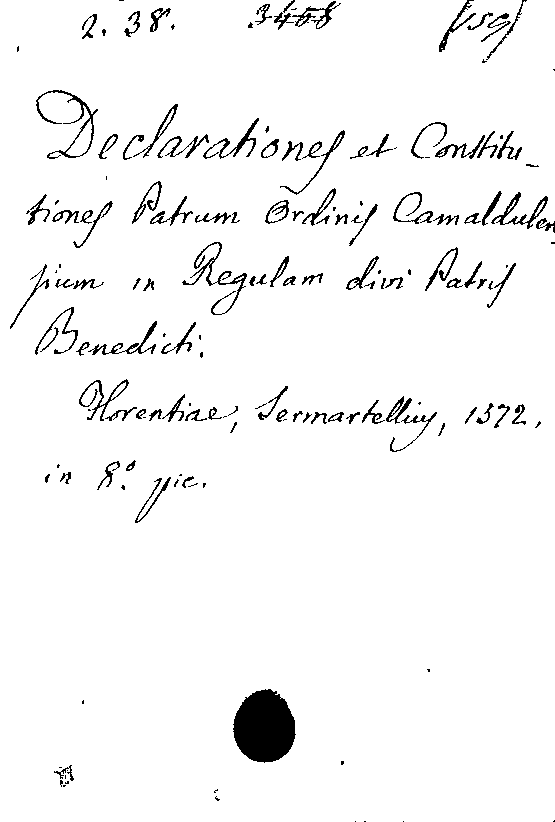 2. 38. 3458 (59)
Declarationes et Constitu_
tiones Patrum Ordinis Camaldulen_
sium in Regulam divi Patris
Benedicti.
Florentiae, Sermartellius, 1572,
in 8.° pic.